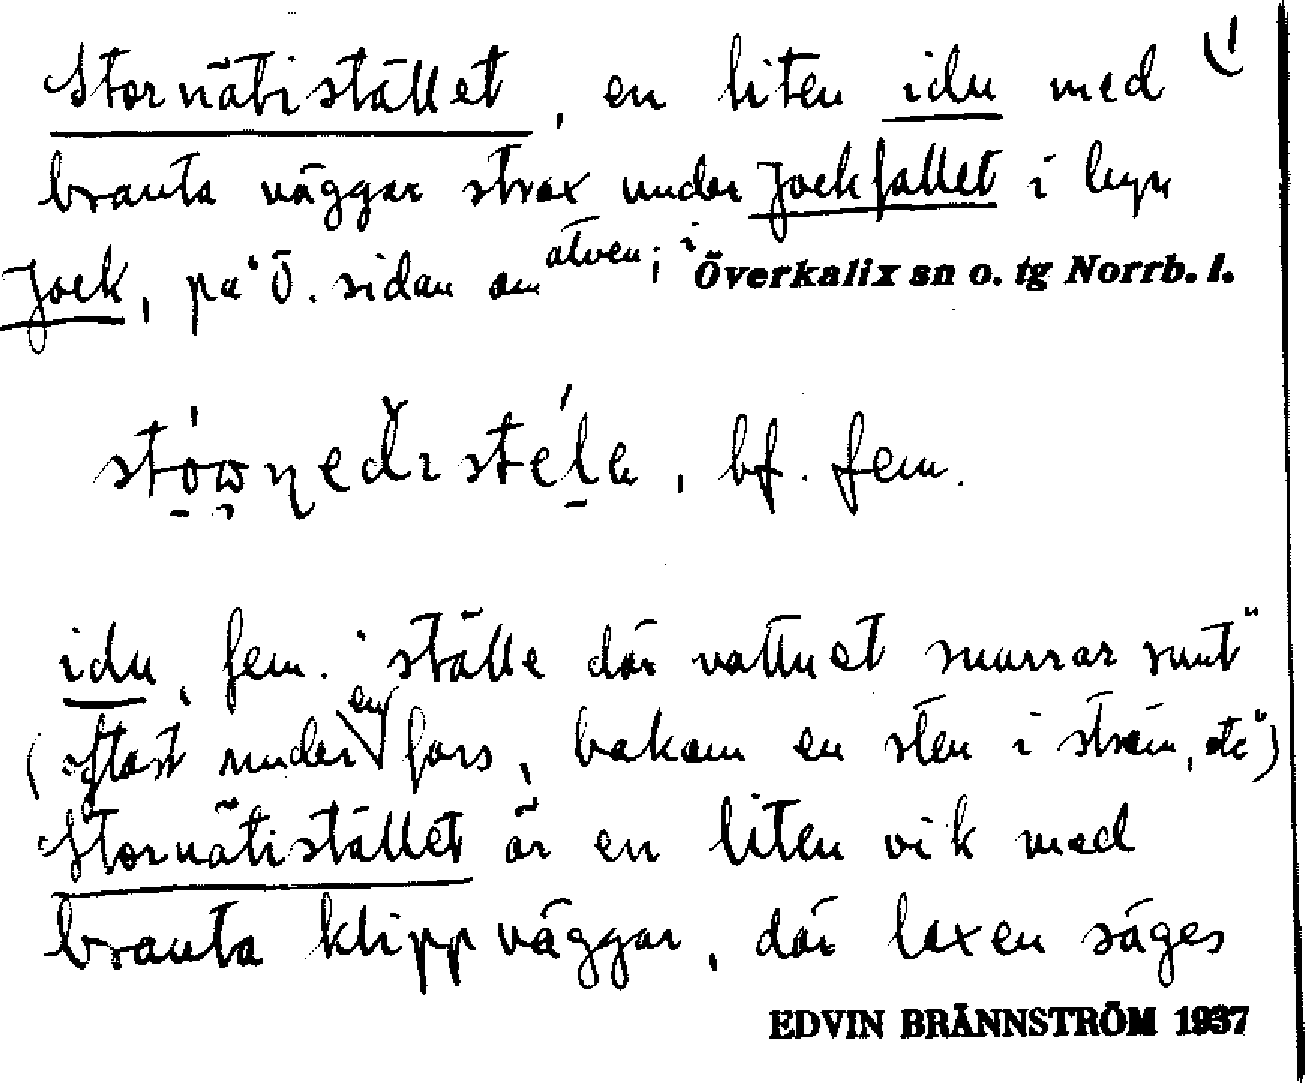 Stornätistället, en liten idu med 1)
branta väggar strax under Jockfallet i byn
Jock, på Ö. sidan om älven; i Överkalix sn o. tg Norrb. l.
bf. fem.
idu, fem. "ställe där vattnet snurrar runt"
(oftast under en fors, bakom en sten i ström, etc")
Stornätistället är en liten vik med
branta klippväggar, där laxen säges
EDVIN BRÄNNSTRÖM 1937